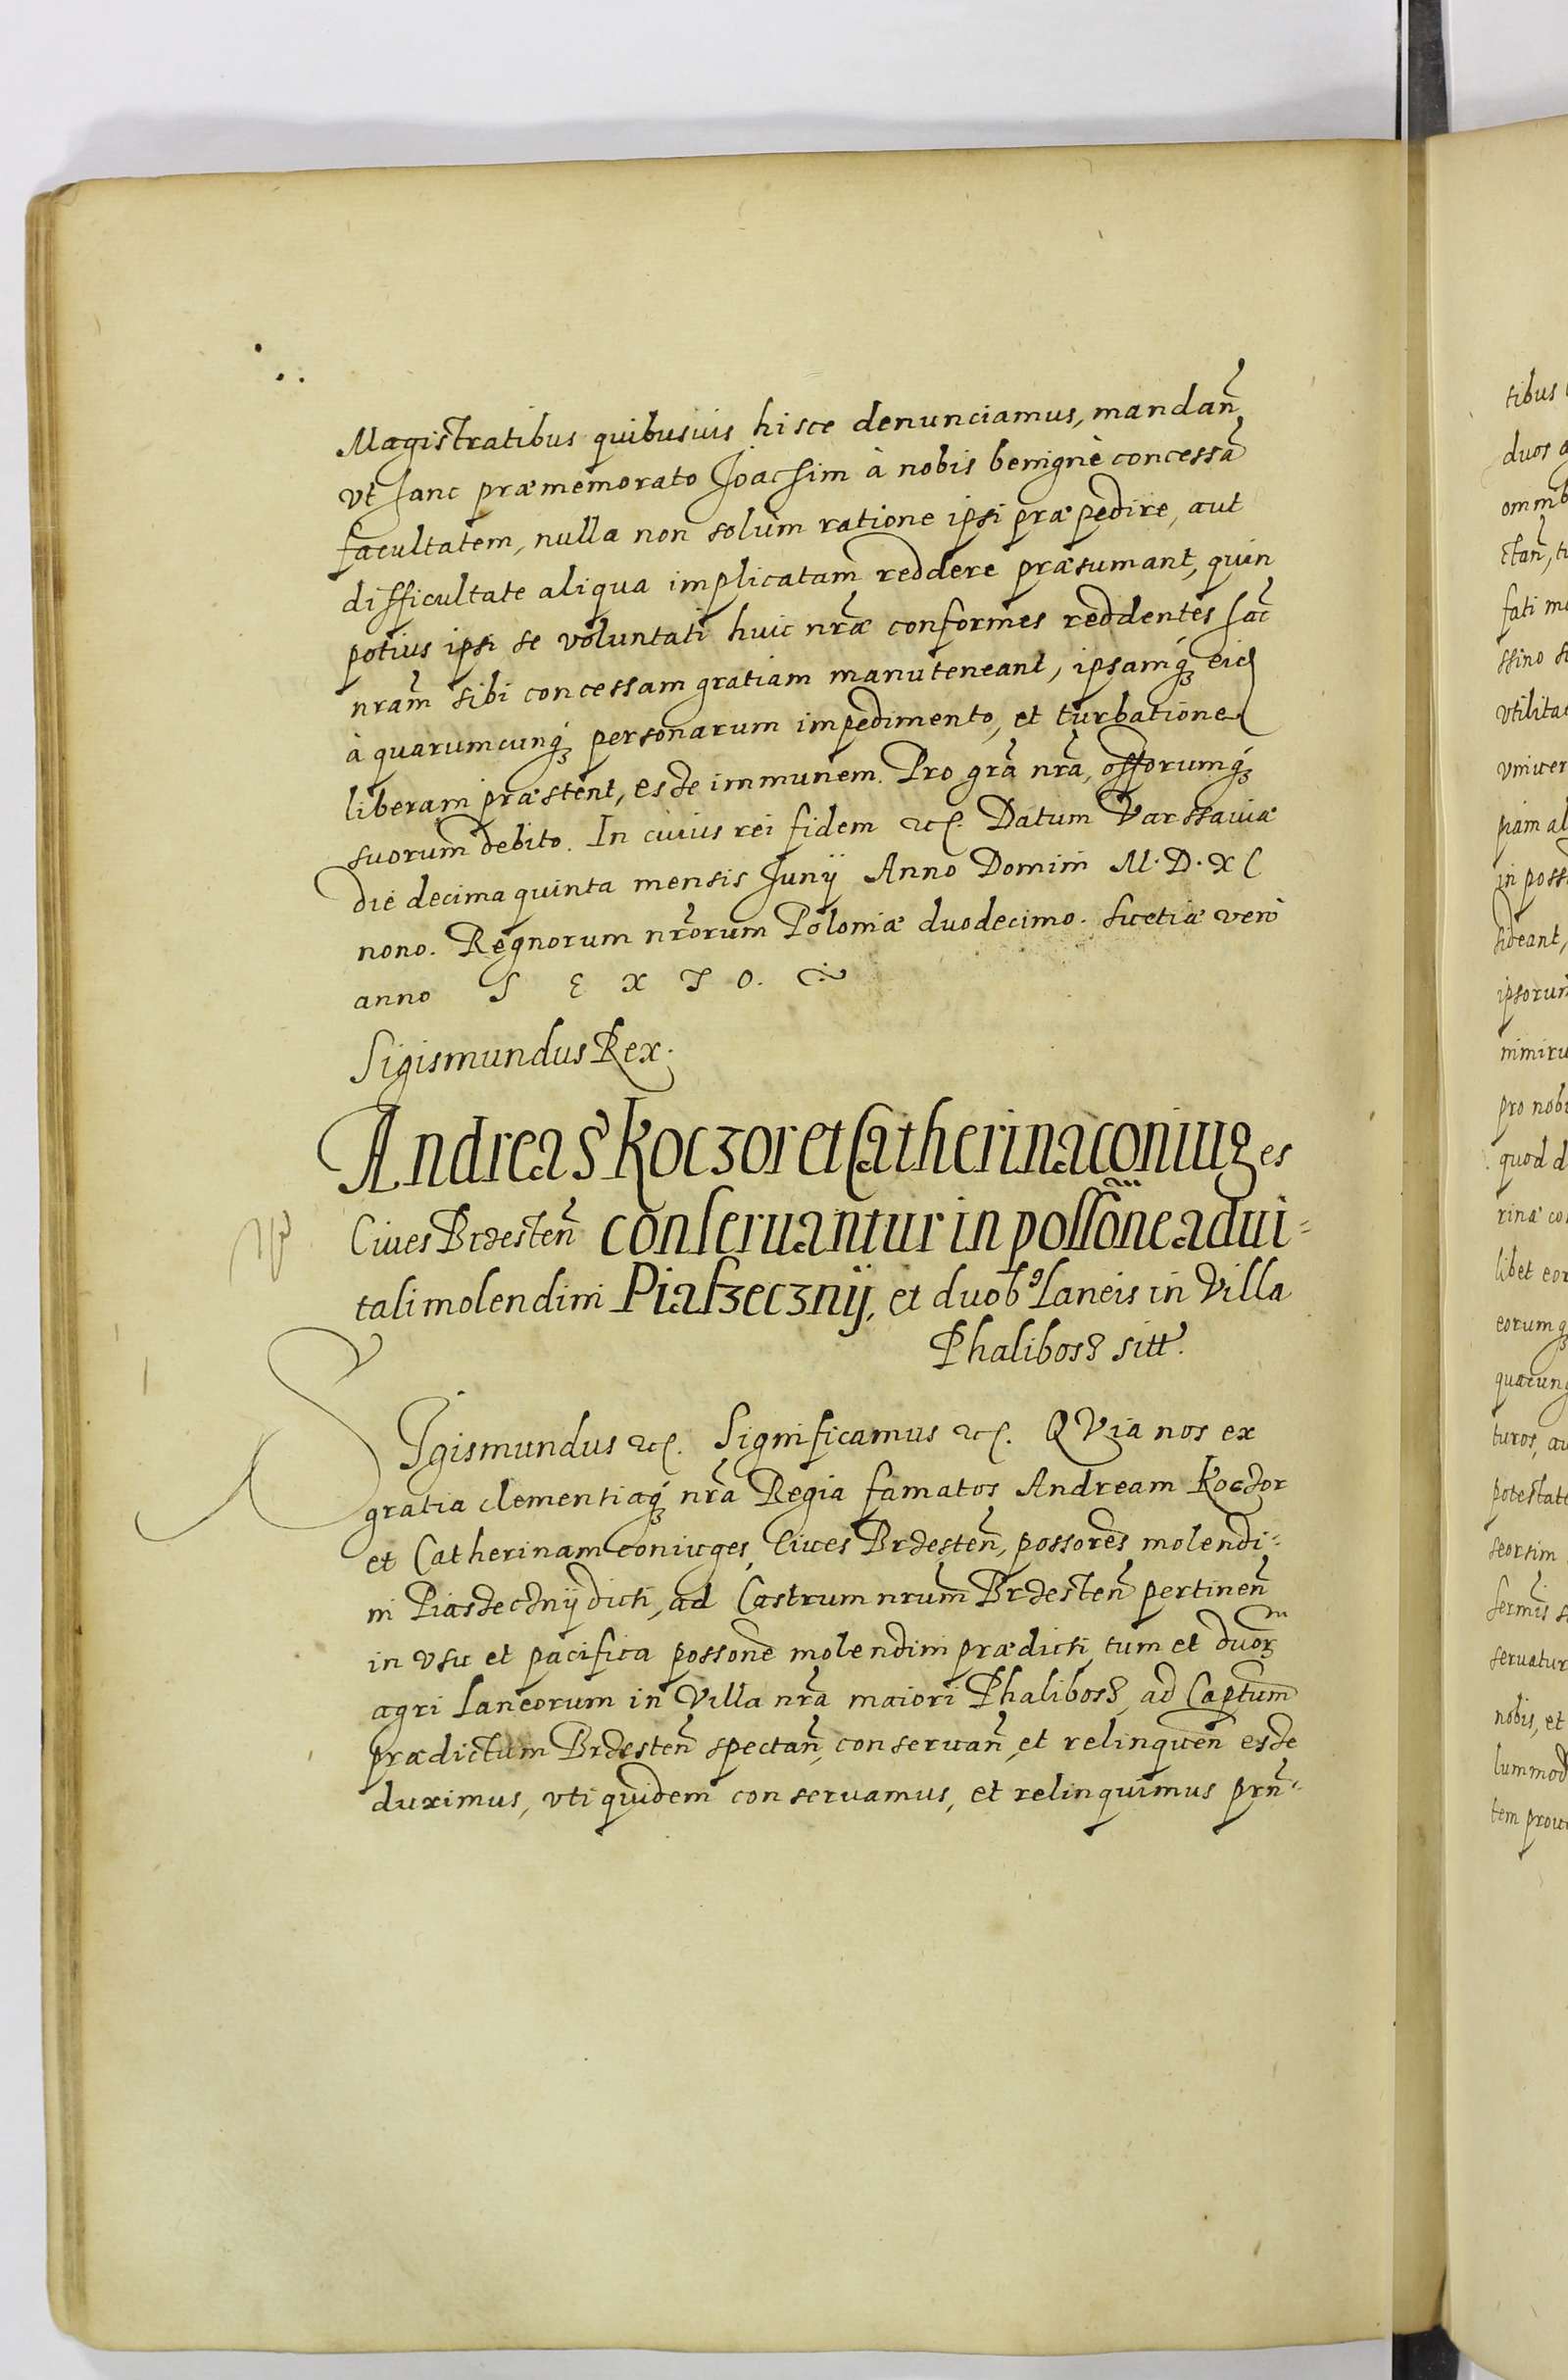 Magistratibus quibusuis hisce denunciamus, mandañ
vt hanc præmemorato Joachim à nobis benignè concessã
facultatem, nulla non solùm ratione ipsi præpedire, aut
difficultate aliqua implicatam reddere præsumant, quin
potius ipsi se voluntati huic nr̃æ conformes reddentes hãc
nram̃ sibi concessam gratiam manuteneant, ipsamq́ʒ
à quarumcunq́ʒ personarum impedimento, et turbatione
liberam præstent, esse immunem. Pro gr̃a nr̃a, offorumq́ʒ
suorum debito. In cuius rei fidem etc. Datum Varssauiæ
die decima quinta mensis Junij Anno Domini M.D.XC
nono. Regnorum nr̃orum Poloniæ duodecimo. Suetiæ verò
anno S E X T O.
Sigismundus Rex.
Andreas Koczor et Catherina coniuges
Ciues Brzesteñ conseruantur in possõne adui=
tali molendini Piaszecznij, et duobꝰ Laneis in Villa
Phalibosz sitt.
SIgismundus etc. Significamus etc. QVia nos ex
gratia clementiaq́ʒ nr̃a Regia famatos Andream Koczor
et Catherinam coniuges, Ciues Brzesteñ, possores molendi=
ni Piaszecznij dicti, ad Castrum nrum̃ Brzesteñ pertineñ
in vsu et pacifica possone molendini prædicti, tum et duorᵐ
agri Laneorum in Villa nr̃a maiori Phalibosz, ad Captum
prædictum Brzesteñ spectañ, conseruañ, et relinqueñ esse
duximus, vti quidem conseruamus, et relinquimus prñ=
tibus
duos